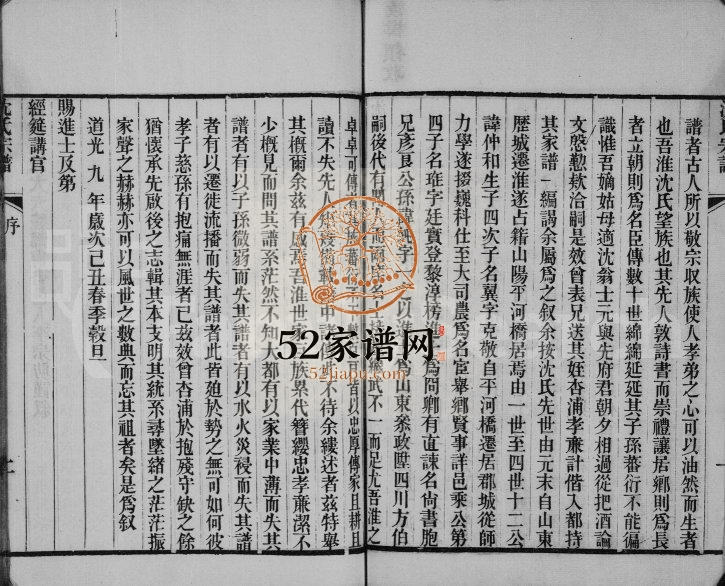 譜者古人所以敬宗収族使人孝弟之心可以油然而生者
也吾淮沈氏望族也其先人敦詩書而崇禮讓居鄉則爲長
者立朝則爲名臣傳數十世綿綿延延其子孫蕃衍不能徧
識惟吾嫡姑母適沈翁士元與先府君朝夕相過從把酒論
文慇懃欵洽嗣是效曾表兄送其姪杏浦孝亷計偕入都持
其家譜一編謁余屬爲之叙余按沈氏先世由元末自山東
歷城遷淮遂占籍山陽平河橋居焉由一世至四世十二公
諱仲和生子四次子名翼字克敬自平河橋遷居郡城從師
力學遂掇巍科仕至大司農爲名宦舉鄉賢事詳邑乘公第
四子名珤字廷實登黎淳榜進士爲冏卿有直諫名尚書胞
兄彥良公孫諱純字
以進
爲山東叅政陞四川方伯
嗣後代有
武不一而足尤吾淮之
卓卓可傳者其族蕃衍
皆以忠厚傳家且耕且
讀不失先人
中
不待余縷述者兹特舉
其槪爾余兹有感焉吾淮世家
族累代簪纓忠孝亷潔不
少槪見而問其譜系茫然不知大都有以家業中薄而失其
譜者有以子孫微弱而失其譜者有以水火災祲而失其譜
者有以遷徙流播而失其譜者此皆廹於勢之無可如何彼
孝子慈孫有抱痛無涯者已兹效曾杏浦於抱殘守缺之餘
猶懷承先啟後之志輯其本支明其統系尋墜緒之茫茫振
家聲之赫赫亦可以風世之數典而忘其祖者矣是爲叙
道光九年歲次己丑春季穀旦
賜進士及第
經筵講官
沈氏宗譜
序
52家谱网
52jiapu.com